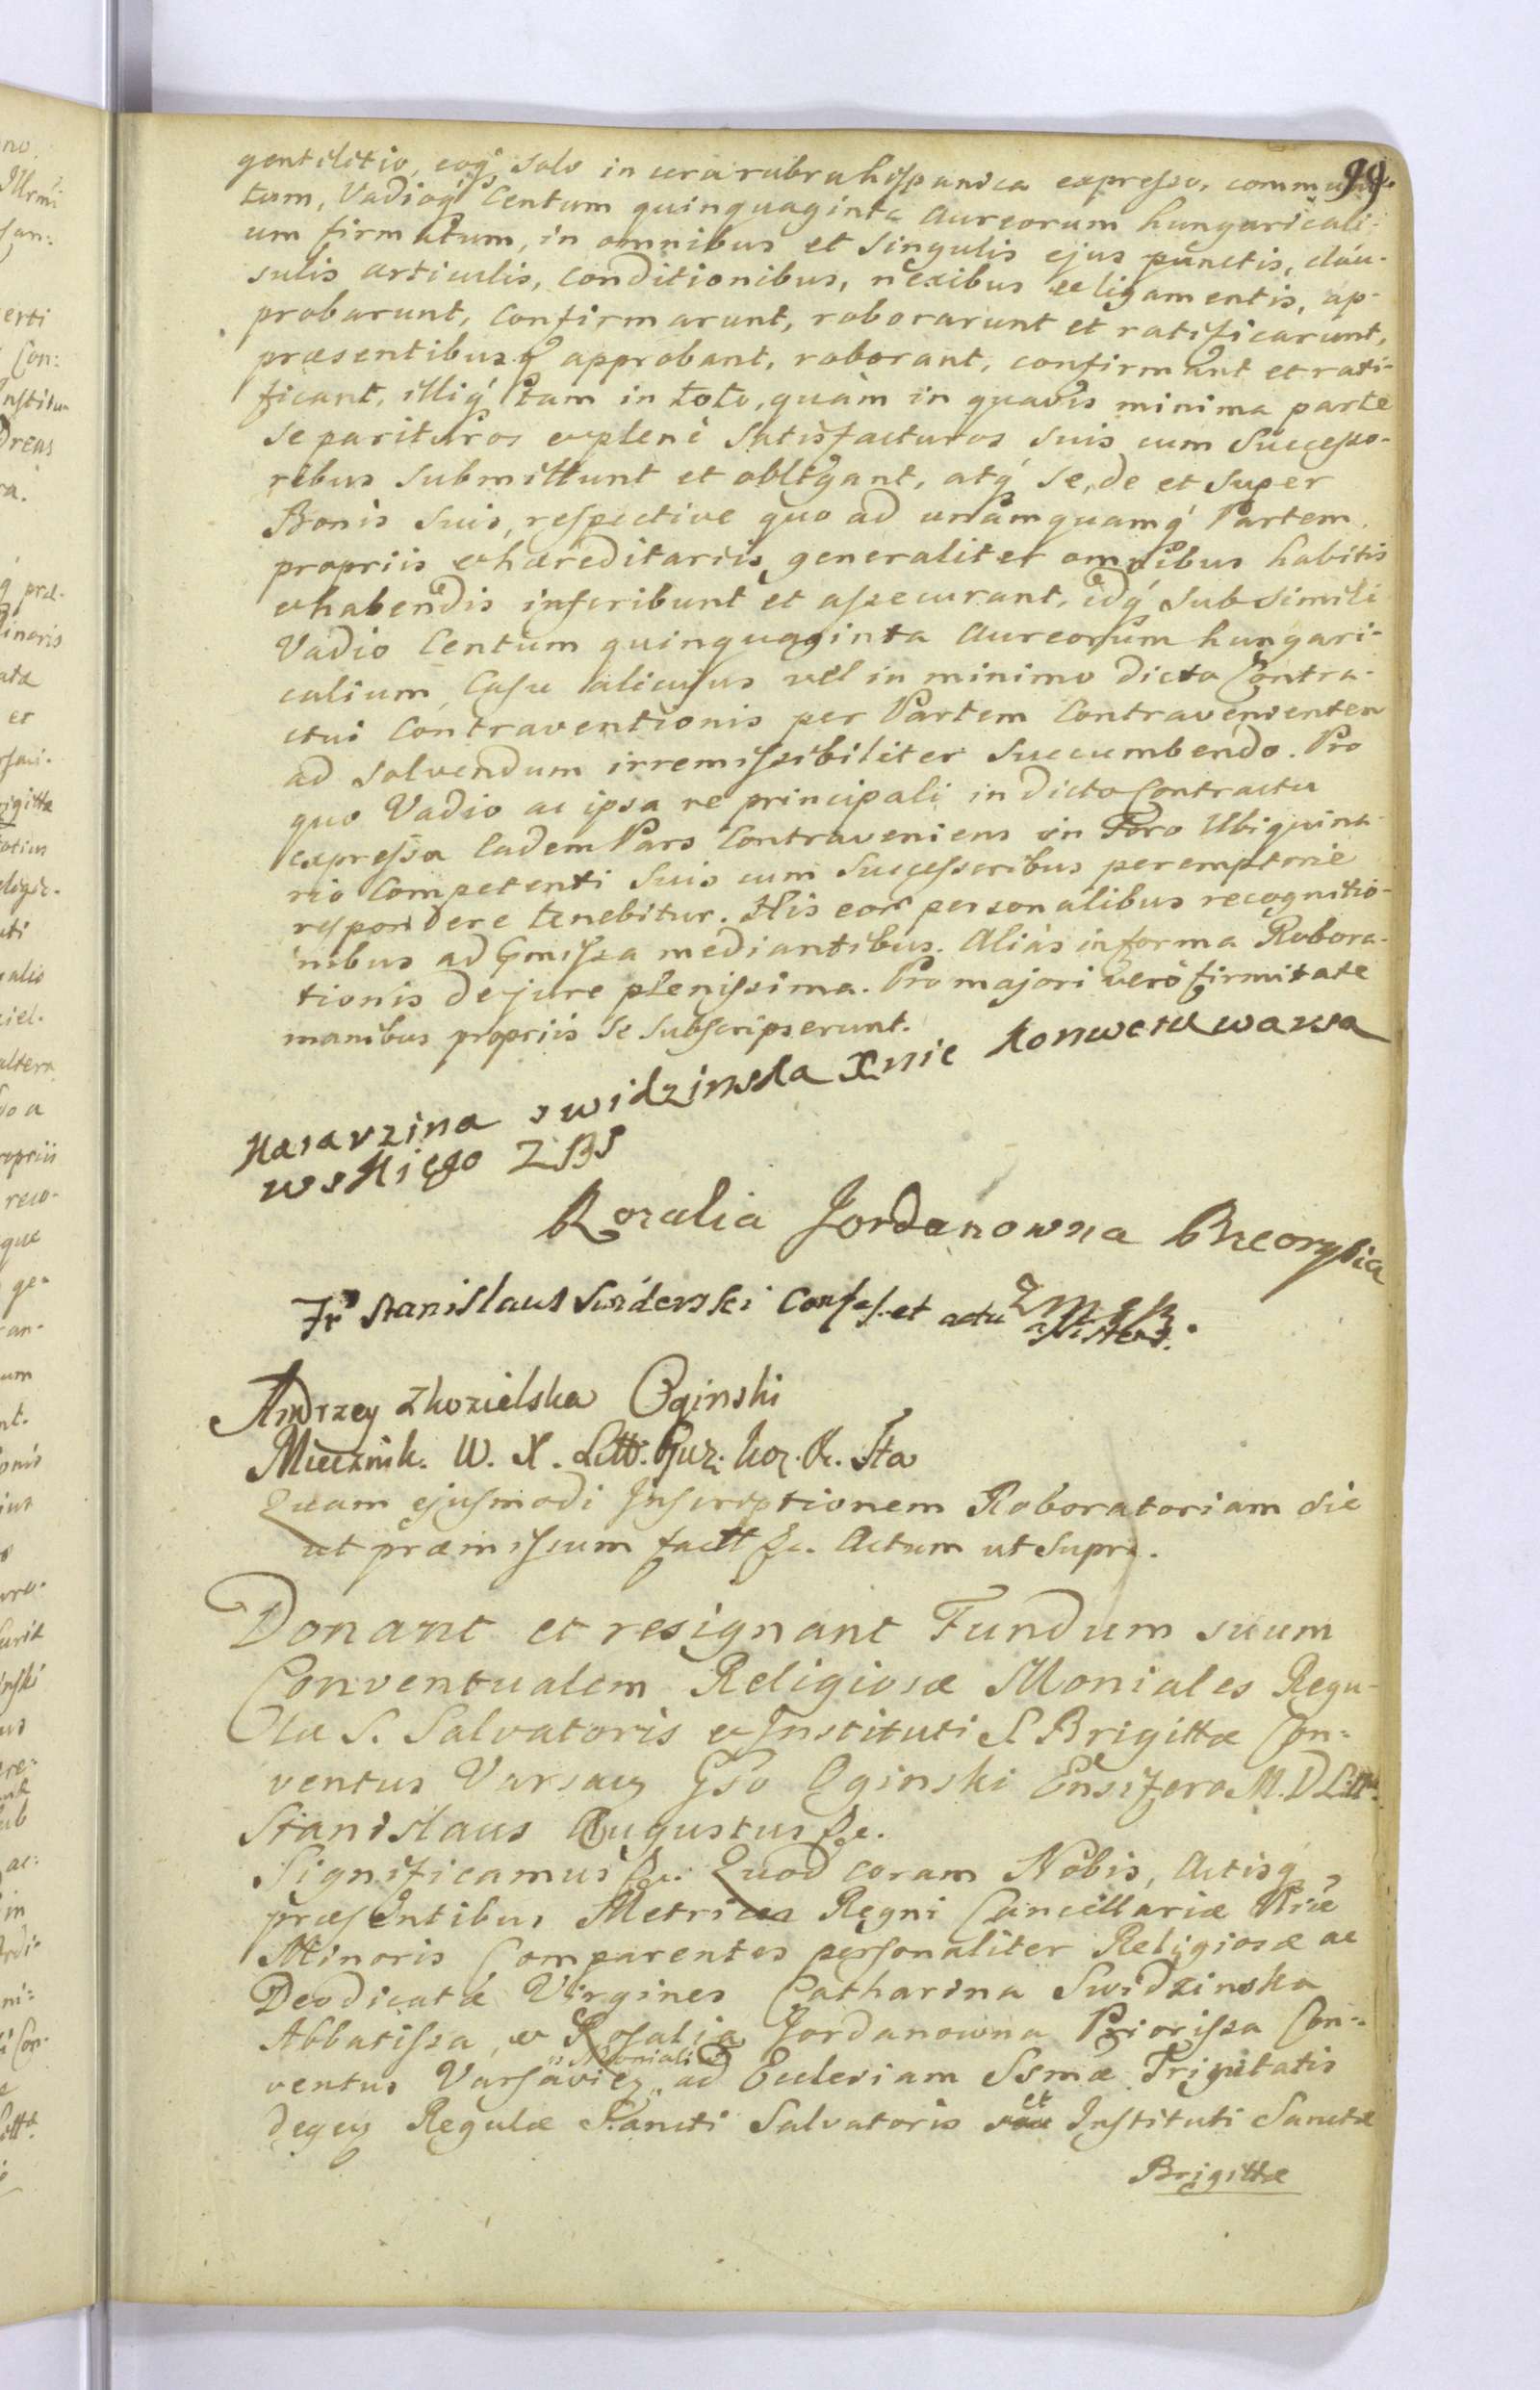 99
gentilitio, eoq́ solo in cera rubra hispanica expresso, communi-
tum, Vadioq́ Centum quinquaginta Aureorum hungaricali-
um firmatum, in omnibus et singulis ejus punctis, clau-
sulis articulis, conditionibus, nexibus ac ligamentis, ap-
probarunt, confirmarunt, roborarunt et ratificarunt,
præsentibusq́ approbant, roborant, confirmant et rati-
ficant, illiq́ tam in toto, quàm in quavis minima parte
se parituros et plenè satisfacturos suis cum Successo-
ribus submittunt et obligant, atq́ se, de et super
Bonis suis, respective quo ad unamquamq́ Partem
propriis et hæreditariis, generaliter omnibus habitis
et habendis inscribunt et assecurant, idq́ sub simili
Vadio Centum quinquaginta Aureorum hungari-
calium, Casu alicujus vel in minimo dicto Contra-
ctui Contraventionis per Partem Contravenientem
ad solvendum irremissibiliter succumbendo. Pro
quo Vadio ac ipsa re principali in dicto Contractu
expressa Eadem Pars Contraveniens in Foro Ubiquina-
rio Competenti suis cum Successoribus peremptorie
respondere tenebitur. His eor personalibus recognitio-
nibus ad p̄missa mediantibus. Aliàs in forma Robora-
tionis de jure plenissima. Pro majori verò firmitate
manibus propriis se subscripserunt.
Katarzina swidzinska Xnie konwetu warsa
wskiego ZBS
Rozalia Jordanowna Przeorysza
Fr Stanislaus Swiderski Confes. et actu assistens.
Zmpp.
Andrzey z kozielska Oginski
Miecznik. W. X. Litt.
Quam ejusmodi Inscriptionem Roboratoriam sic
ut præmissum factt &c. Actum ut supra.
Donant et resignant Fundum suum
Conventualem Religiosæ Moniales Regu-
læ S. Salvatoris et Instituti S Brigittæ Con=
ventus Varsav Gso Oginski Ensifero M. D Litt.
Stanislaus Augustus &c.
Significamus &c. Quod coram Nobis, Actisq́
præsentibus Metrices Regni Cancellariæ Nræ
Minoris Comparentes personaliter Religiosæ ac
Deodicatæ Virgines Catharina Swidzinska
Abbatissa, et Rosalia Jordanowna Priorissa Con-
ventus Varsavien „ Moniali „ ad Ecclesiam Ssmæ Trinitatis
degen Regulæ Sancti Salvatoris et Instituti Sanctæ
Brigittæ